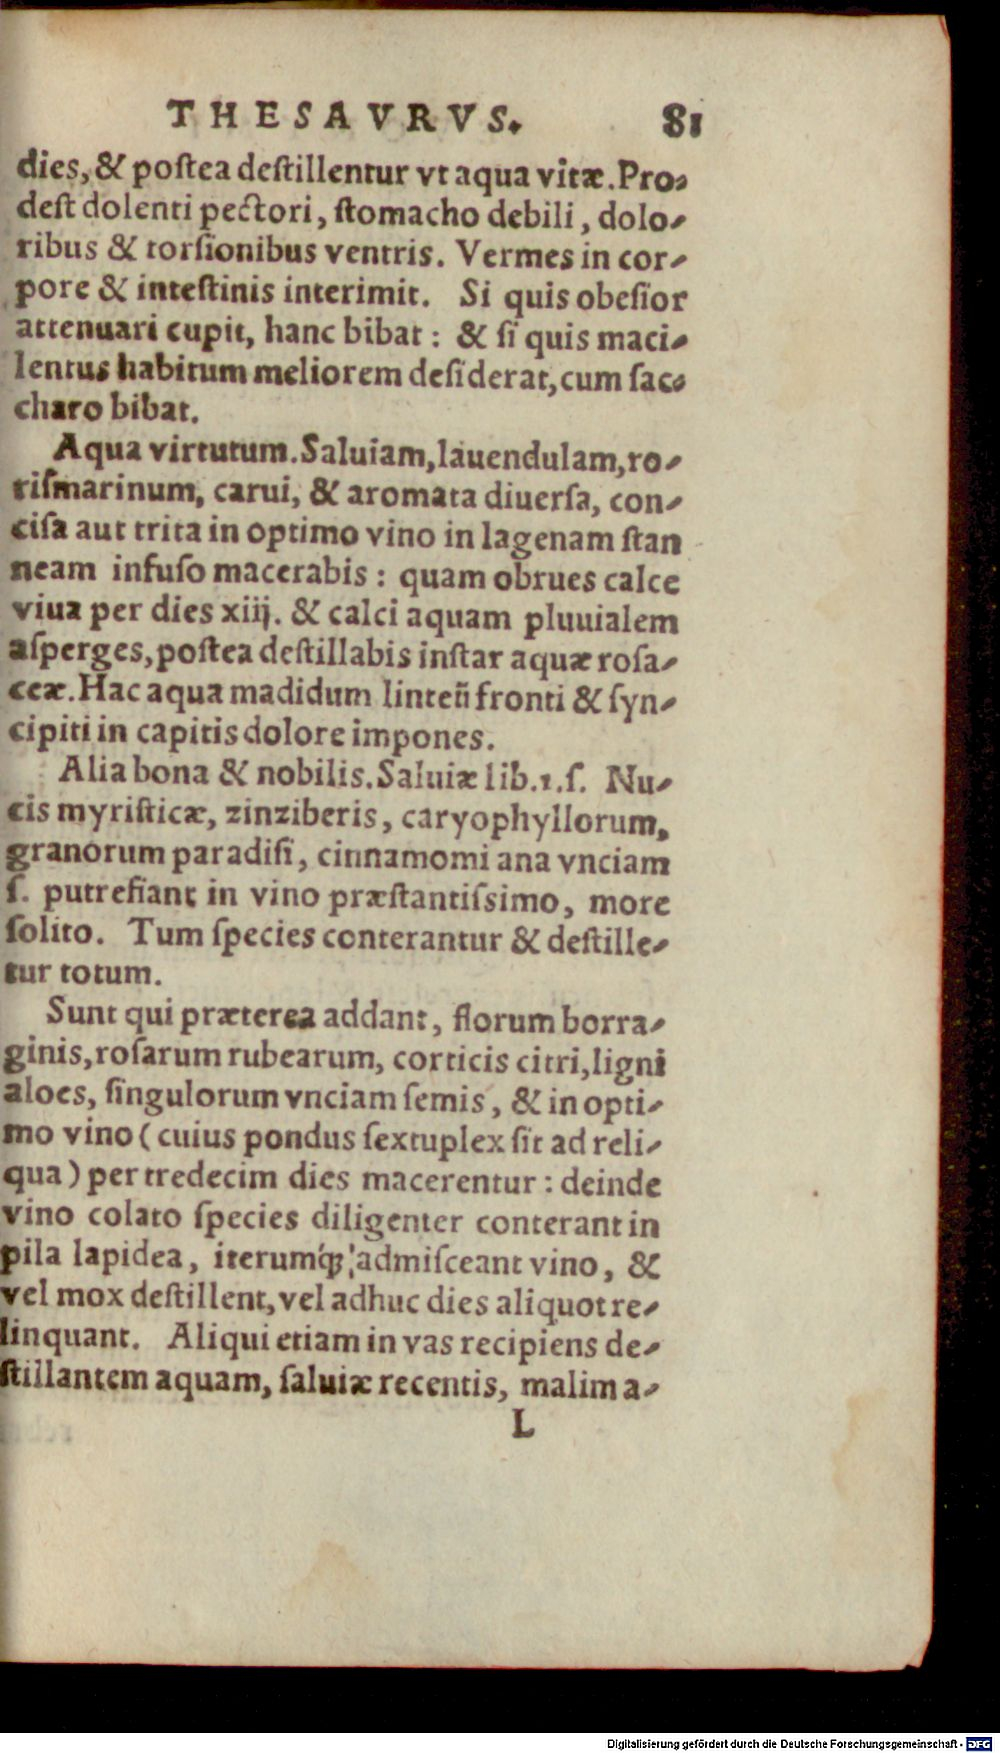 THESAVRVS. 81
dies, & poſtea deſtillentur vt aqua vitæ. Pro-
deſt dolenti pectori, ſtomacho debili, dolo-
ribus & torſionibus ventris. Vermes in cor-
pore & inteſtinis interimit. Si quis obeſior
attenuari cupit, hanc bibat: & ſi quis maci-
lentus habitum meliorem deſiderat, cum ſac-
charo bibat.
Aqua virtutum. Saluiam, lauendulam, ro-
riſmarinum, carui, & aromata diuerſa, con-
ciſa aut trita in optimo vino in lagenam ſtan
neam infuſo macerabis: quam obrues calce
viua per dies xiij. & calci aquam pluuialem
aſperges, poſtea deſtillabis inſtar aquæ roſa-
ceæ. Hac aqua madidum linteũ fronti & ſyn-
cipiti in capitis dolore impones.
Alia bona & nobilis. Saluiæ lib.1.ſ. Nu-
cis myriſticæ, zinziberis, caryophyllorum,
granorum paradiſi, cinnamomi ana vnciam
ſ. putrefiant in vino præſtantiſsimo, more
ſolito. Tum ſpecies conterantur & deſtille-
tur totum.
Sunt qui præterea addant, florum borra-
ginis, roſarum rubearum, corticis citri, ligni
aloes, ſingulorum vnciam ſemis, & in opti-
mo vino (cuius pondus ſextuplex ſit ad reli-
qua) per tredecim dies macerentur: deinde
vino colato ſpecies diligenter conterant in
pila lapidea, iterumq́ꝫ admiſceant vino, &
vel mox deſtillent, vel adhuc dies aliquot re-
linquant. Aliqui etiam in vas recipiens de-
ſtillantem aquam, ſaluiæ recentis, malim a-
L
Digitalisierung gefördert durch die Deutsche Forschungsgemeinschaft - DFG